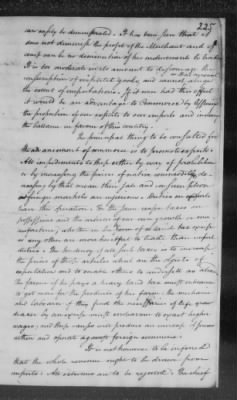 225
can easily be demonstrated. It has been seen that it
does not decrease the profit of the Merchant and if
can be no diminution of his inducements to trade.
It is too moderate in its amount to discourage the
consumption of imported goods, and cannot abridge
the extent of importations. If it even had this effect
it would be an advantage to Commerce by lessening
the proportion of our imports to our exports and inclining
the balance in favor of this country.
The principal thing to be consulted for
the advancement of commerce is to promote exports.
All impediments to these either by way of prohibition
or by increasing the prices of native commodities de-
creasing by that means their sale and consumption
at foreign markets are injurious. Duties on exports
have this operation. For the same reason taxes on
possessions and the articles of our own growth or man-
ufacture, whether in the form of a land tax excise
or any other are more hurtful to trade than impost
duties. The tendency of all such taxes is to increase
the prices of those articles which are the objects of
exportation and to enable others to undersell us abroad
the farmer if he pays a heavy land tax must endeavor
to get more for the products of his farm: the mechanic
and labourer if they find the necessaries of life grow
dearer by an excise must endeavour to exact higher
wages; and these causes will produce an increase of prices
within and operate against foreign commerce.
It is not however to be inferred
that the whole revenue ought to be drawn from
imports: all extremes are to be rejected. The chief